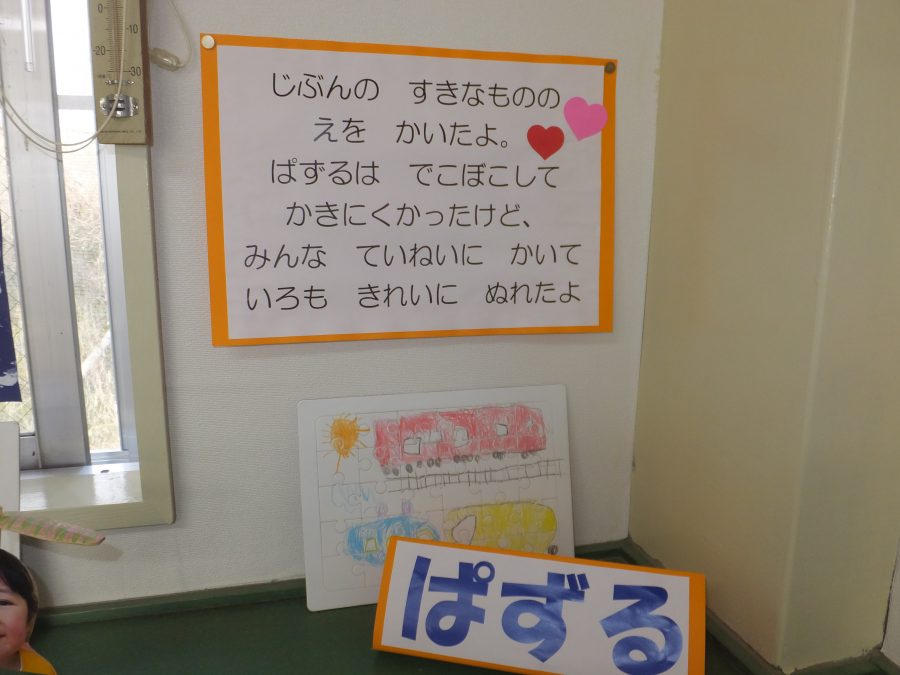 じぶんの すきなものの
えを かいたよ。
ぱずるは でこぼこして
かきにくかったけど、
みんな ていねいに かいて
いろも きれいに ぬれたよ
ぱずる
20
10
0
10
20
30